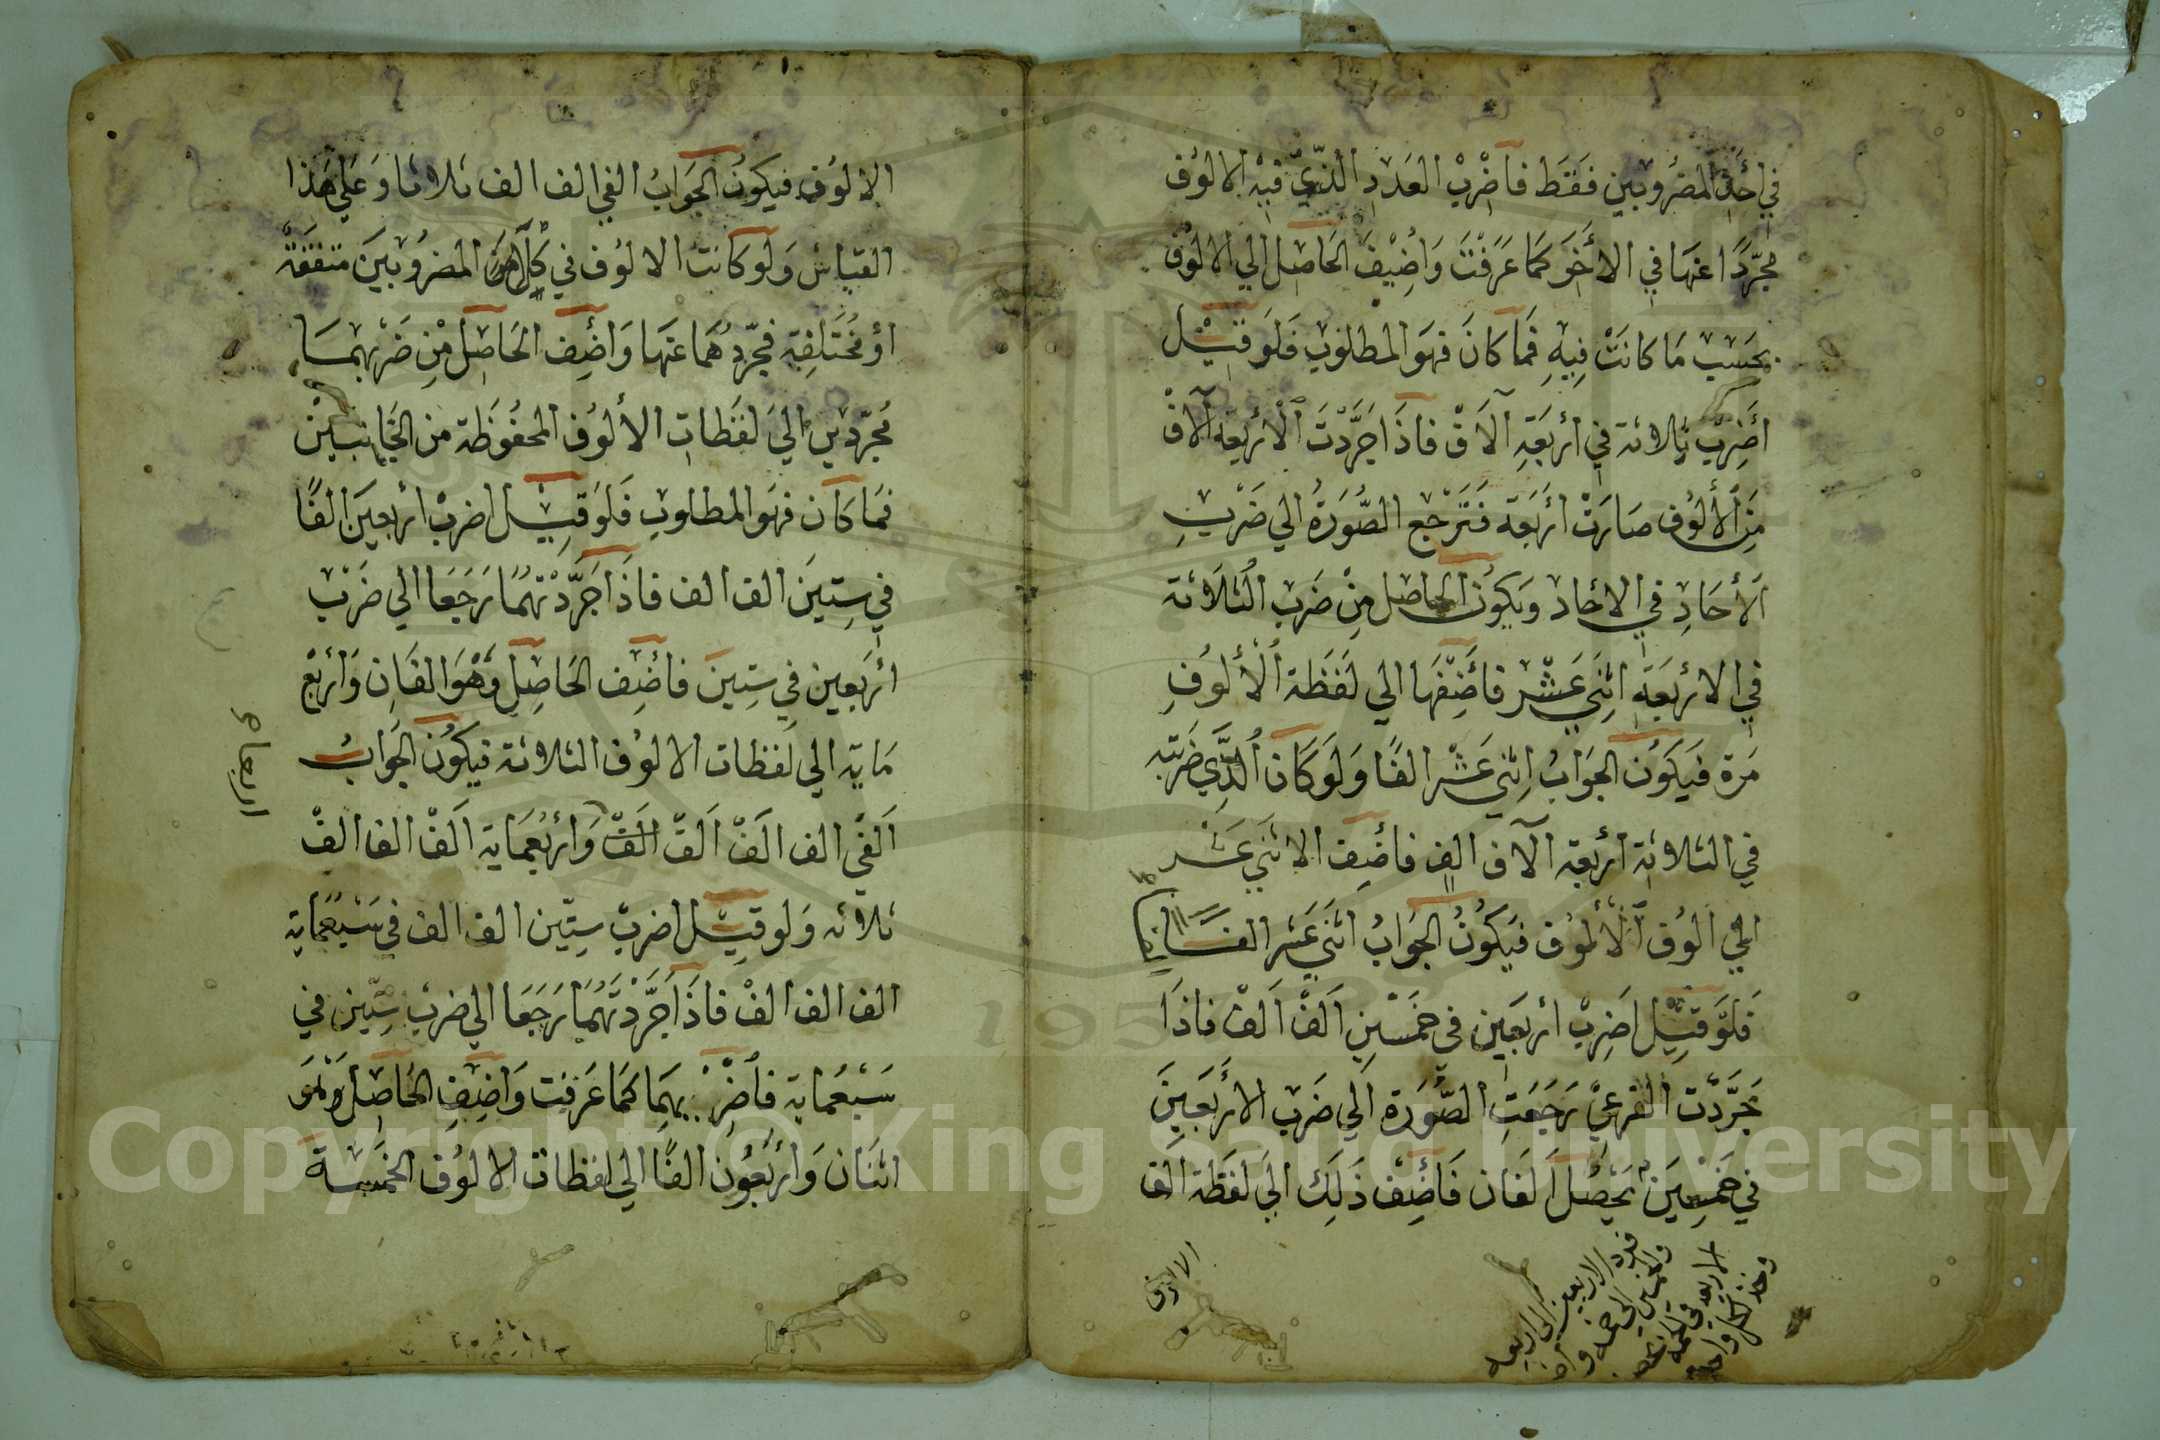 في احد المضروبين فقط فاضرب العدد الذي فيه الالوف
مجردا عنها في الأخر كما عرفت واضيف الحاصل الي الالوف
بحسب ما كانت فيه فما كان فهو المطلوب فلو قيل
أضرب ثلاثة في أربعة آلاف فاذا جردت الأربعة آلاف
من الألوف صارت أربعة فترجع الصورة الي ضرب
الأحاد في الاحاد ويكون الحاصل من ضرب الثلاثة
في الاربعة اثني عشر فأضفها الي لفظة الألوف
مرة فيكون الجواب اثني عشر الفا ولو كان الذي ضربته
في الثلاثة أربعة آلاف الف فأضف الاثني عشر
الي الوف الألوف فيكون الجواب اثني عشر الفا
فلو قيل اضرب اربعين في خمسين الف الف فاذا
جردت الفرعي رجعت الصورة الي ضرب الأربعين
في خمسين يحصل الفان فأضف ذلك الي لفظة الف
فرد الاربعين الى اربعه
والخمسين الى خمسه
الاربعه في الخمسه
وخذ لكل واحد
الالوف
الالوف فيكون الجواب الفي الف الف ثلاثا وعلي هذا
القياس ولو كانت الالوف في كل المضروبين متفقة
أو مختلفة فجردهما عنها وأضف الحاصل من ضربهما
مجردين الي لفظات الألوف المحفوظة من الجانبين
فما كان فهو المطلوب فلو قيل اضرب أربعين الفا
في ستين الف الف فاذا جردتهما رجعا الي ضرب
أربعين في ستين فأضف الحاصل وهو الفان وأربع
ماية الي لفظات الالوف الثلاثة فيكون الجواب
الفي الف الف الف الف وأربعماية الف الف الف
ثلاثه ولو قيل اضرب ستين الف الف في سبعماية
الف الف الف فاذا جردتهما رجعا الي ضرب ستين في
سبعماية فاضر بهما كما عرفت واضيف الحاصل وهو
اثنان وأربعون الفا الي لفظات الالوف الخمسة
اربعماه
Copyright © King Saud University
195